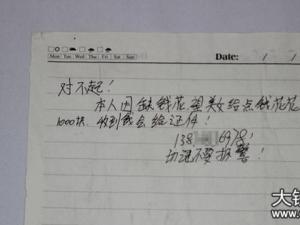 Mon. Tue. Wed. Thu. Fri. Sat. Sun.
Date: / /
对不起!
本人因缺钱花,望美女给点钱花花
1000块,收到钱会给证件!
138 6978,
切记不要报警!